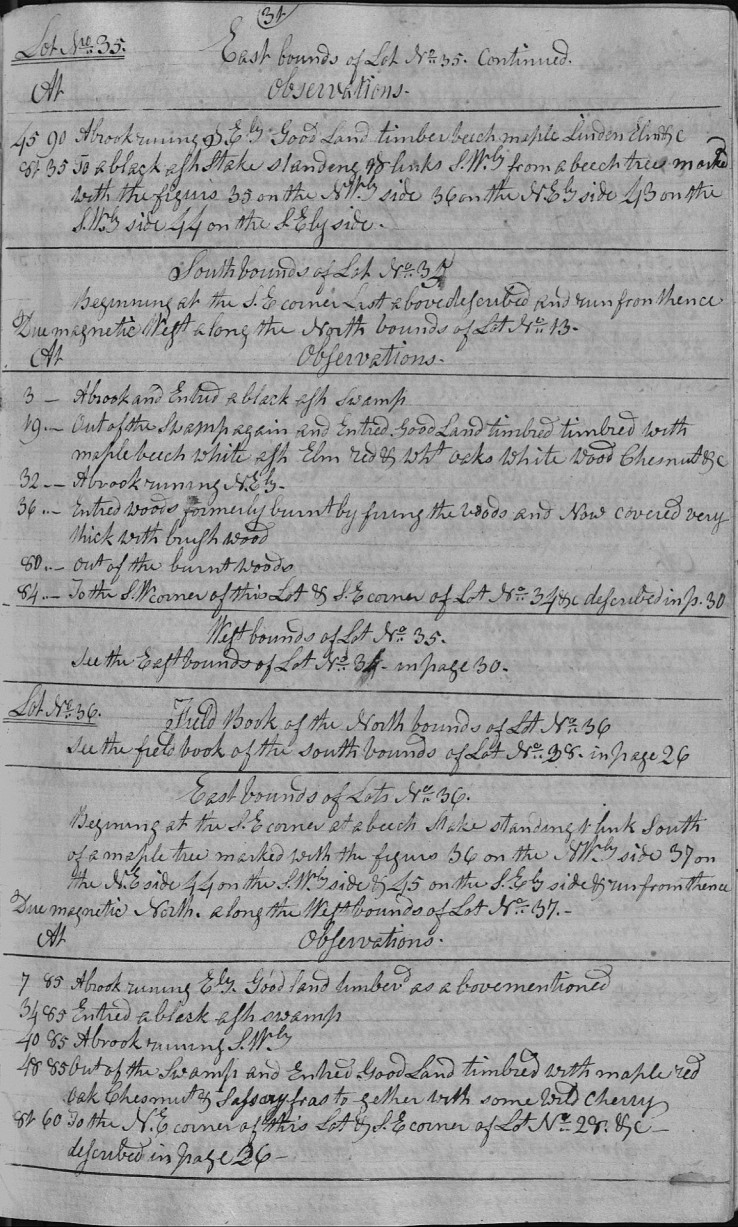 34
Lot No. 35. East bounds of Lot No. 35. Continued.
At Observations.
45 90 A brook runing Ely Good Land timber beech maple Linden Elm &c
To a black ash Stake standing links S.Wly from a beech tree markd
with the figurs 35 on the NWly side 36 on the N.Ely side 43 on the
S.Wly side 44 on the S.Ely side.
South bounds of Lot No. 35
Beginning at the S.E corner Last above described and run from thence
Due magnetic West along the North bounds of Lot No. 43.
At Observations.
3 — A brook and Entred a black ash Swamp
19 .— Out of the Swamp again and Entred Good Land timbred timbred with
maple beech white ash Elm red & wht oaks white wood Chesnut &c
32 — A brook runing N.Ely.
36 ..— Entred woods formerly burnt by firing the woods and Now covered very
thick with brush wood
80 ..— out of the burnt woods
84 ..— To the S.W corner of this Lot & S.E corner of Lot No. 34 &c described in p. 30
West bounds of Lot No. 35.
see the East bounds of Lot No. 34. in page 30.
Lot No. 36. Field Book of the North bounds of Lot No. 36
see the field book of the south bounds of Lot No. 28. in page 26
East bounds of Lots No. 36.
Begining at the S.E corner at a beech Stake standing 1 link South
of a maple tree marked with the figurs 36 on the NWly side 37 on
the N.E side 44 on the S.Wly side & 45 on the S.Ely side & run from thence
Due magnetic North. along the West bounds of Lot No. 37.—
At Observations.
7 85 A brook runing Ely. Good land timberd as above mentioned
34 85 Entred a black ash swamp
40 85 A brook runing S.Wly
48 85 Out of the Swamp and Entred Good Land timbred with maple red
oak Chesnut & Sassafras to gether with some Wild Cherry
81 60 To the N.E corner of this Lot & S.E corner of Lot No. 28. &c —
described in page 26 —